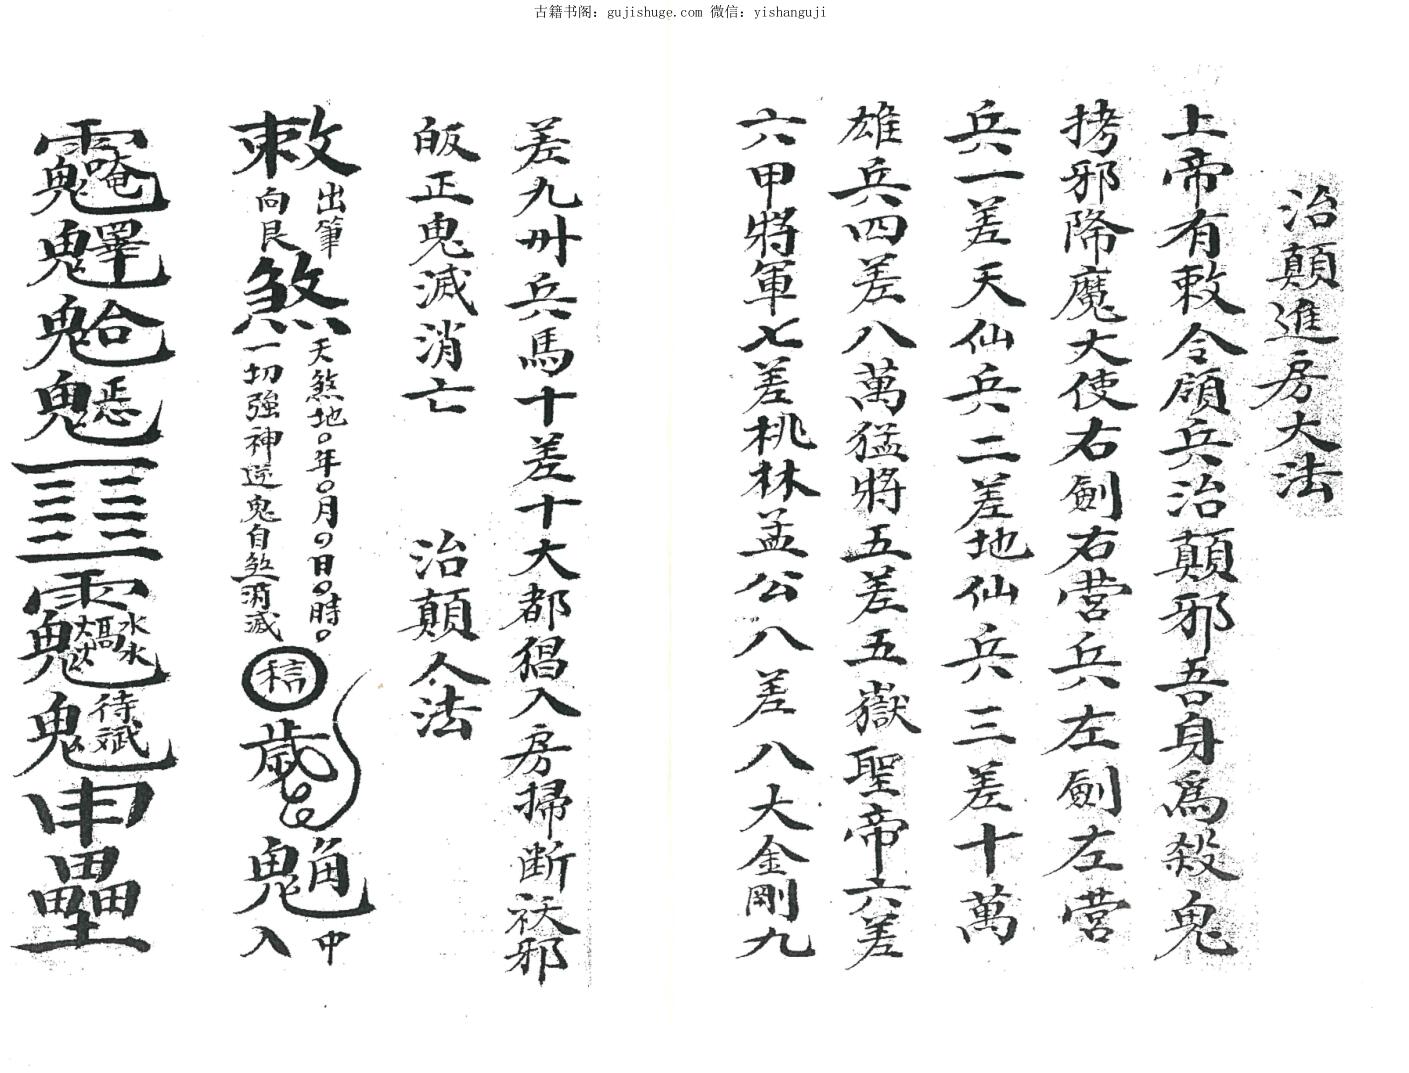 古籍书阁：gujishuge.com 微信：yishanguji
治顛進房大法
上帝有敕令領兵治顛邪吾身爲殺鬼
拷邪降魔大使右劍右营兵左劍左营
兵一差天仙兵二差地仙兵三差十萬
雄兵四差八萬猛將五差五嶽聖帝六差
六甲將軍七差桃林孟公八差八大金剛九
差九州兵馬十差十大都猖入房掃断祅邪
皈正鬼滅消亡
治顛人法
敕
出筆
向艮
煞
天煞地煞年煞月煞日煞時煞
一切強神逆鬼自煞消滅
中
入
申
壘